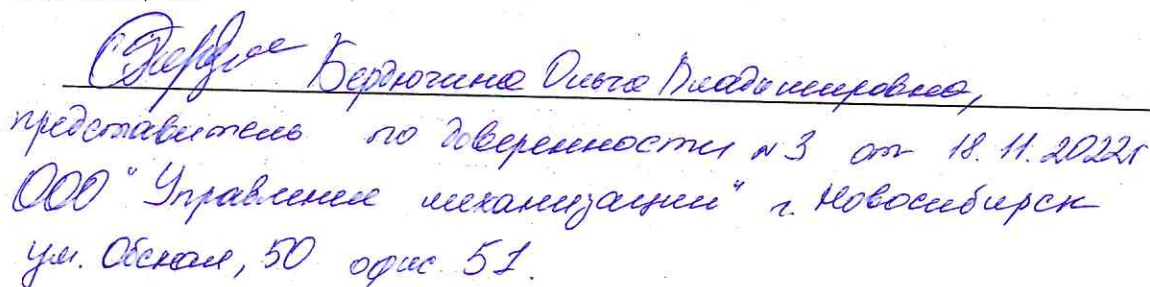 Бердючина Ольга Владимировна,
представитель по доверенности №3 от 18.11.2022г
ООО "Управление механизации" г. Новосибирск
ул. Обская, 50 офис 51.